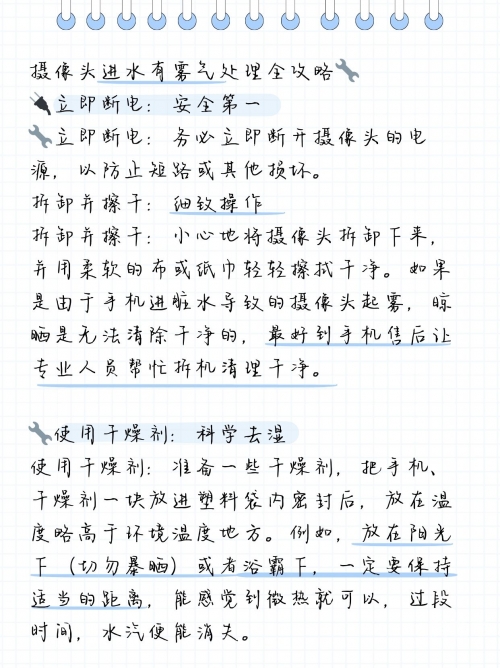 摄像头进水有雾气处理全攻略🔧
🔌立即断电：安全第一
🔧立即断电：务必立即断开摄像头的电
源，以防止短路或其他损坏。
拆卸并擦干：细致操作
拆卸并擦干：小心地将摄像头拆卸下来，
并用柔软的布或纸巾轻轻擦拭干净。如果
是由于手机进脏水导致的摄像头起雾，晾
晒是无法清除干净的，最好到手机售后让
专业人员帮忙拆机清理干净。
🔧使用干燥剂：科学去湿
使用干燥剂：准备一些干燥剂，把手机、
干燥剂一块放进塑料袋内密封后，放在温
度略高于环境温度地方。例如，放在阳光
下（切勿暴晒）或者浴霸下，一定要保持
适当的距离，能感觉到微热就可以，过段
时间，水汽便能消失。